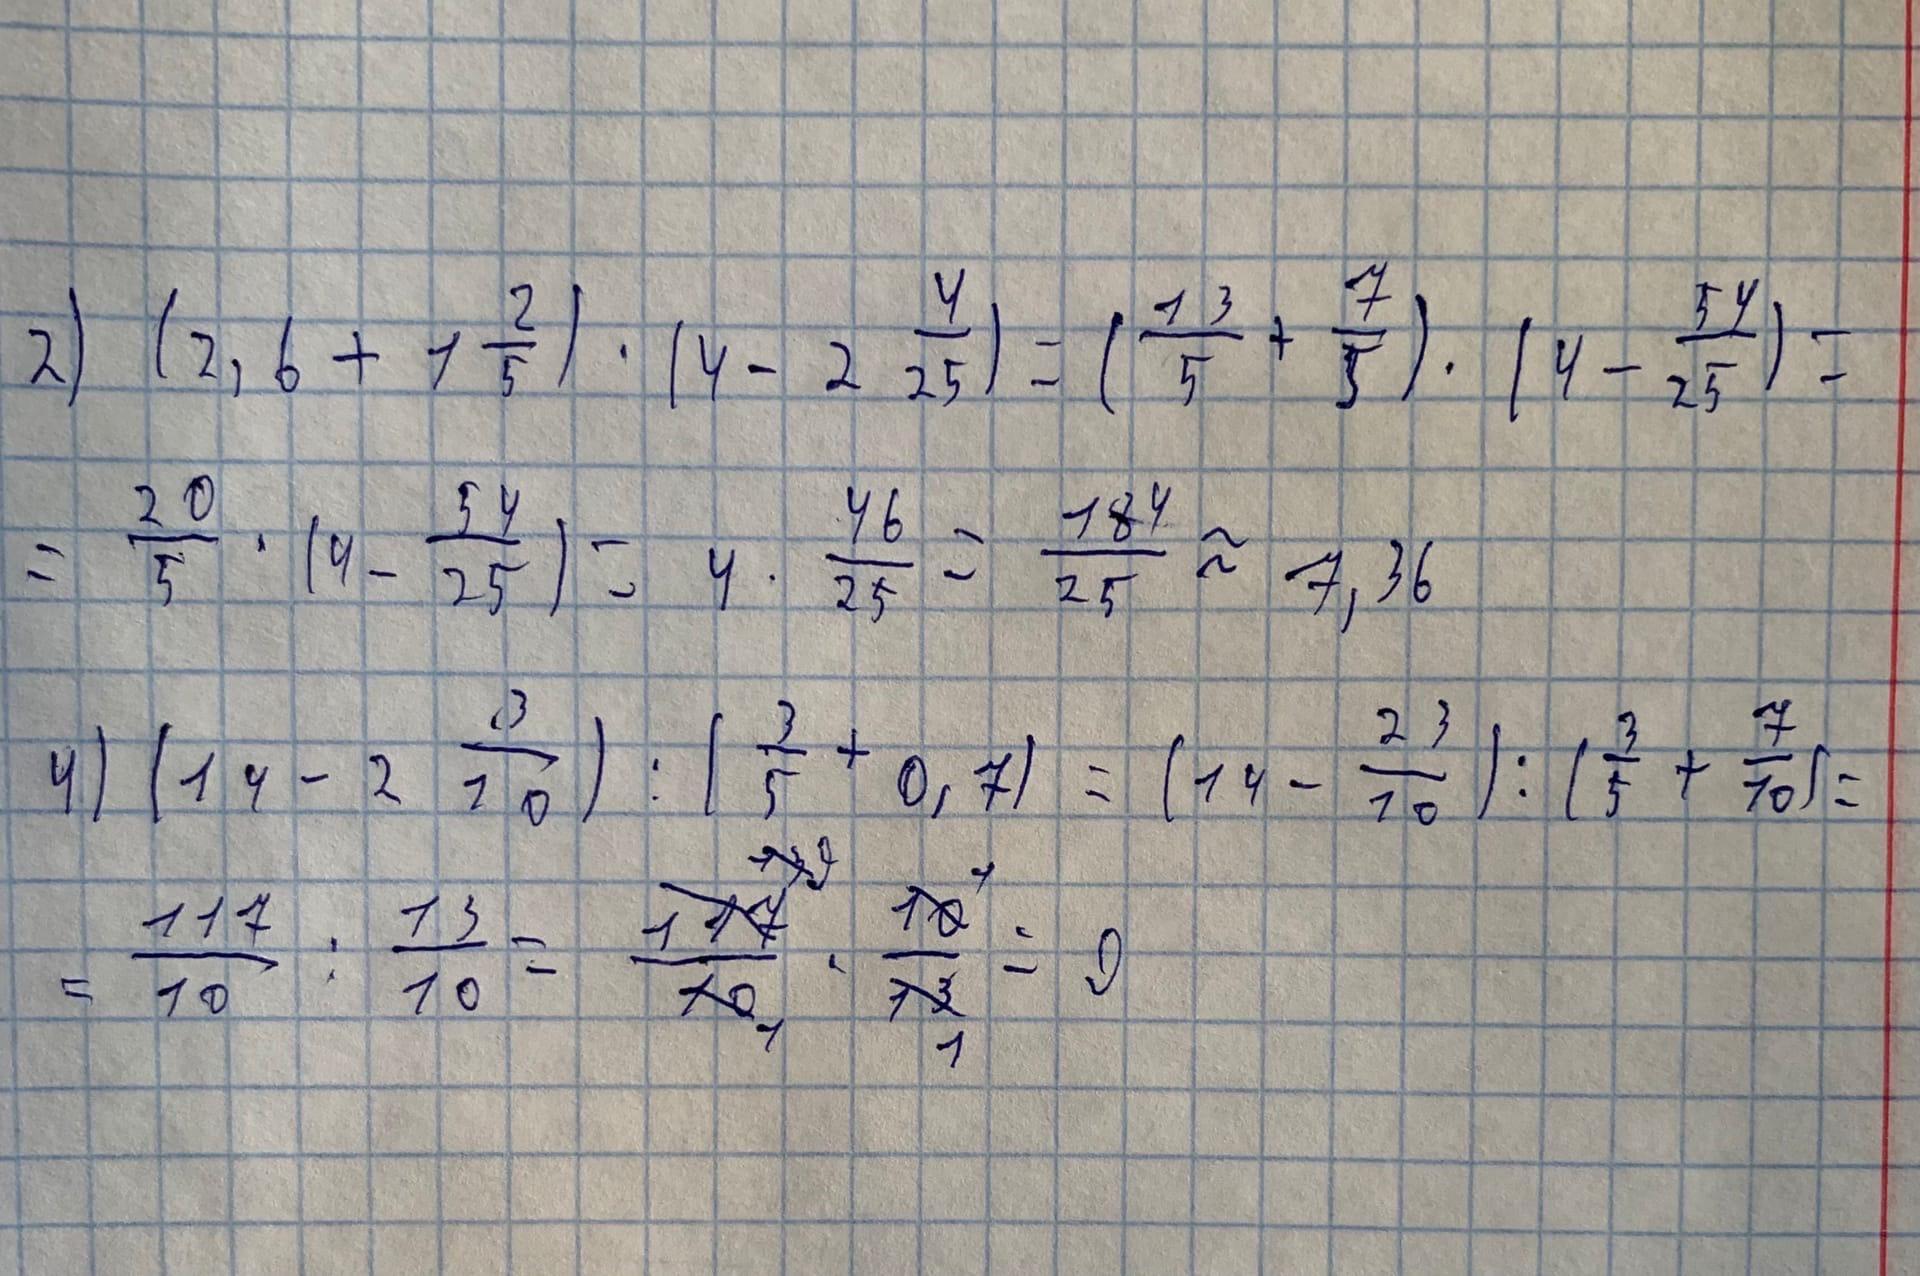 2) (2,6 + 1 2/5) · (4 - 2 4/25) = (13/5 + 7/5) · (4 - 54/25) =
= 20/5 · (4 - 54/25) = 4 · 46/25 = 184/25 ≈ 7,36
4) (14 - 2 3/10) : (3/5 + 0,7) = (14 - 23/10) : (3/5 + 7/10) =
= 117/10 : 13/10 = 117/10 · 10/13 = 9